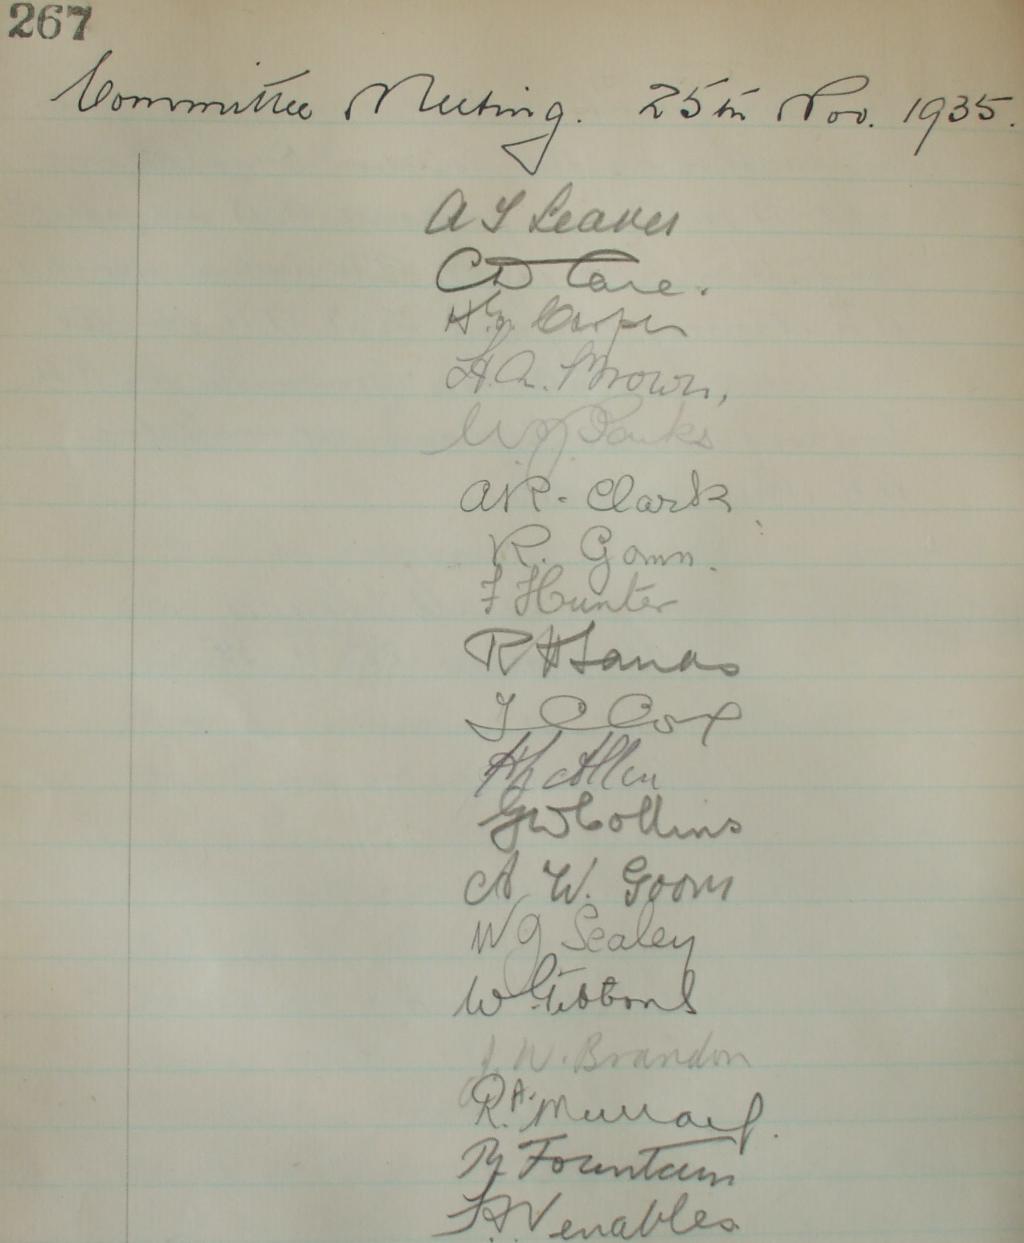 267
Committee Meeting. 25th Nov. 1935.
A T Leaver
CD Cave.
H. G. Cooper
H. A. Brown,
W J Banks
A R. Clark
R. Gomm.
F Hunter
R H Sands
T C Cox
Allen
G W Collins
A W. Goom
W G Sealey
W Gibbons
J. W. Brandon
R. A. Murray.
R Fountain
F. A. Venables